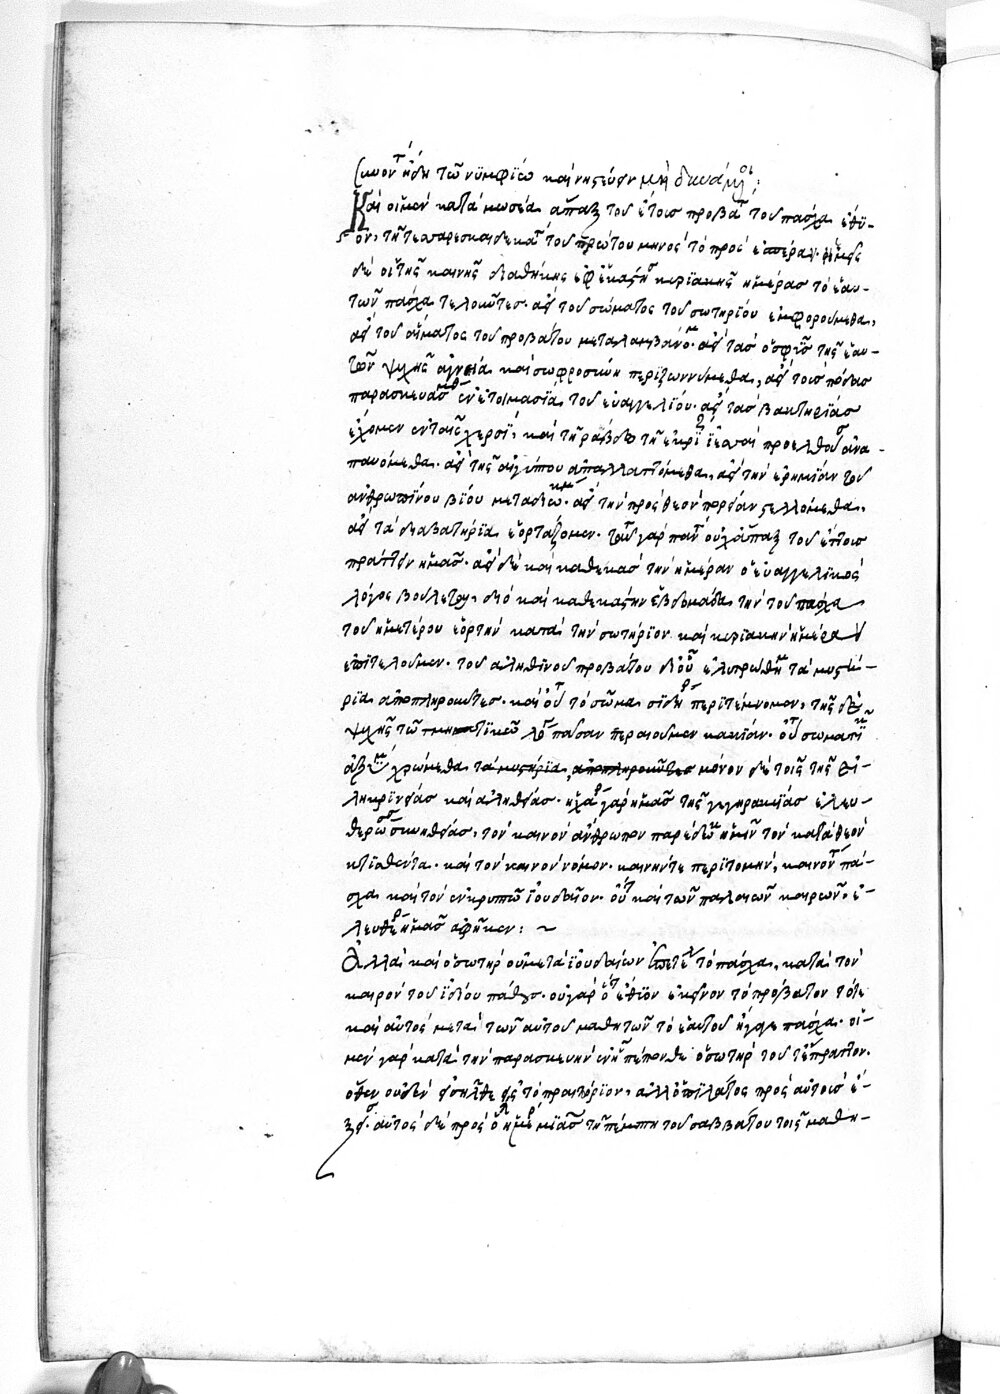 σκυον τ ἤδη τῶ νυμφίω καὶ νηστεύειν μὴ δυνάμενοι;
Καὶ οἱ μὲν κατὰ μωσέα ἅπαξ τοῦ ἔτους πρόβατον τοῦ πάσχα ἐθύ-
ον, τῆ τεσσαρεσκαιδεκάτη τοῦ πρώτου μηνὸς τὸ πρὸς ἑσπέραν. ἡμεῖς
δὲ οἱ τῆς καινῆς διαθήκης ἐφ' ἑκάστης κυριακῆς ἡμέρας τὸ ἑαυ-
τῶν πάσχα τελοῦντες. ἀεὶ τοῦ σώματος τοῦ σωτηρίου ἐμφορούμεθα,
ἀεὶ τοῦ αἵματος τοῦ προβάτου μεταλαμβάνομεν. ἀεὶ τὰς ὀσφῦς τῆς ἑαυ-
τῶν ψυχῆς ἁγνεία καὶ σωφροσύνη περιζωννύμεθα, ἀεὶ τοὺς πόδας
παρασκευάσμεθα ἐν ἑτοιμασία τοῦ εὐαγγελίου. ἀεὶ τὰς βακτηρίας
ἔχομεν ἐν ταῖς χερσὶ, καὶ τῆ ράβδω τῆ ἐκ ρίζης ἰεσσαὶ προελθούσης ἀνα-
παυόμεθα. ἀεὶ τῆς αἰγύπτου ἀπαλλαττόμεθα, ἀεὶ τὴν ἐρημίαν τοῦ
ἀνθρωπίνου βίου μεταδιώκομεν. ἀεὶ τὴν πρὸς θεὸν πορείαν στελλόμεθα,
ἀεὶ τὰ διαβατήρια ἑορτάζομεν. ταῦτα γὰρ πάντα οὐχ ἅπαξ τοῦ ἔτους
πράττειν ἡμᾶς. ἀεὶ δὲ καὶ καθεκάστην ἡμέραν ὁ εὐαγγελικὸς
λόγος βούλεται, διὸ καὶ καθεκάστην ἑβδομάδα τὴν τοῦ πάσχα
τοῦ ἡμετέρου ἑορτὴν κατὰ τὴν σωτήριον καὶ κυριακὴν ἡμέραν
ἐπιτελοῦμεν. τοῦ ἀληθινοῦ προβάτου δι' οὗ ἐλυτρώθημεν τὰ μυστή-
ρια ἀποπληροῦντες. καὶ οὔτε τὸ σῶμα σιδήρω περιτέμνομεν, τῆς δὲ
ψυχῆς τῶ τμητικῶ λόγω πᾶσαν περαιοῦμεν κακίαν. οὔτε σωματικοῖς
ἀζύμοις χρώμεθα τὰ μυστήρια ἀποπληροῦντες μόνον δὲ τοῖς τῆς εἰ-
λικρινείας καὶ ἀληθείας. ἡ χάρις γὰρ ἡμᾶς τῆς γεγηρακυίας ἐλευ-
θερώσασα συνηθείας, τὸν καινὸν ἄνθρωπον παρέδωκεν ἡμῖν τὸν κατὰ θεὸν
κτισθέντα. καὶ τὸν καινὸν νόμον. καινήν τε περιτομὴν, καινόν τε πά-
σχα καὶ τὸν ἐν κρυπτῶ ἰουδαῖον. οὕτω καὶ τῶν παλαιῶν καιρῶν ἐ-
λευθέρους ἡμᾶς ἀφῆκεν: ~
Ἀλλὰ καὶ ὁ σωτὴρ οὐ μετὰ ἰουδαίων ἐπετέλει τὸ πάσχα, κατὰ τὸν
καιρὸν τοῦ ἰδίου πάθους. οὐ γὰρ ὅτε ἔθυον ἐκεῖνοι τὸ πρόβατον τότε
καὶ αὐτὸς μετὰ τῶν αὐτοῦ μαθητῶν τὸ ἑαυτοῦ ἦγε πάσχα. οἱ-
μὲν γὰρ κατὰ τὴν παρασκευὴν ἐν ἧ πέπονθε ὁ σωτὴρ τοῦτ' ἔπραττον.
ὅθεν οὐδὲν εἰσῆλθε εἰς τὸ πραιτώριον, ἀλλ' ὁ πιλάτος πρὸς αὐτοὺς ἐ-
ξει. αὐτὸς δὲ πρὸ ὅλης ἡμέρας μιᾶς τῆ πέμπτη τοῦ σαββάτου τοῖς μαθη-